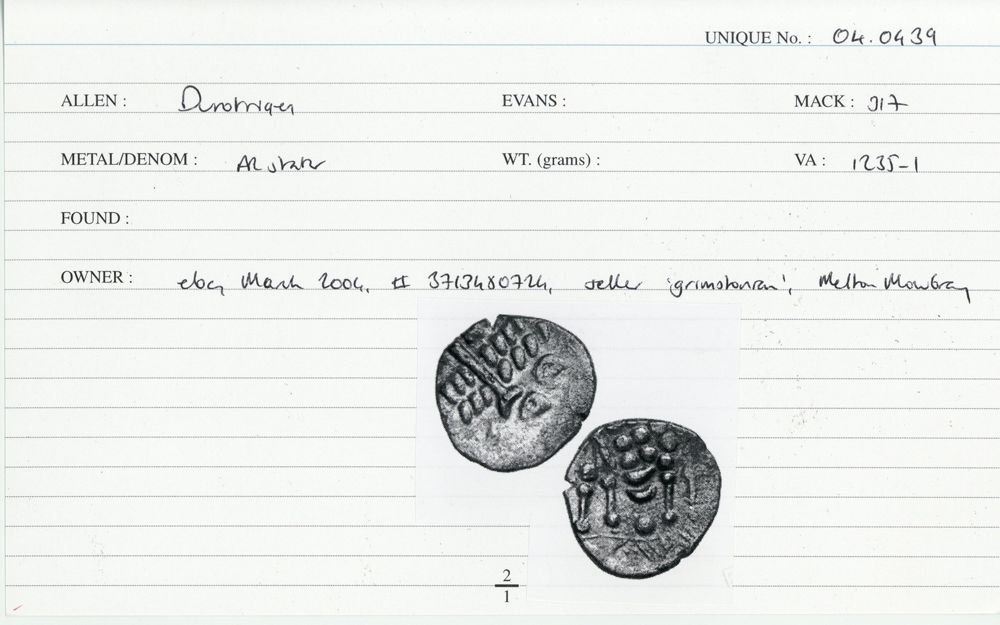 UNIQUE No. : 04.0439
ALLEN : Durotriges EVANS : MACK : 317
METAL/DENOM : AR stater WT. (grams) : VA : 1235-1
FOUND :
OWNER : ebay March 2004, # 3713480724, seller 'grimstonran', Melton Mowbray
2
1